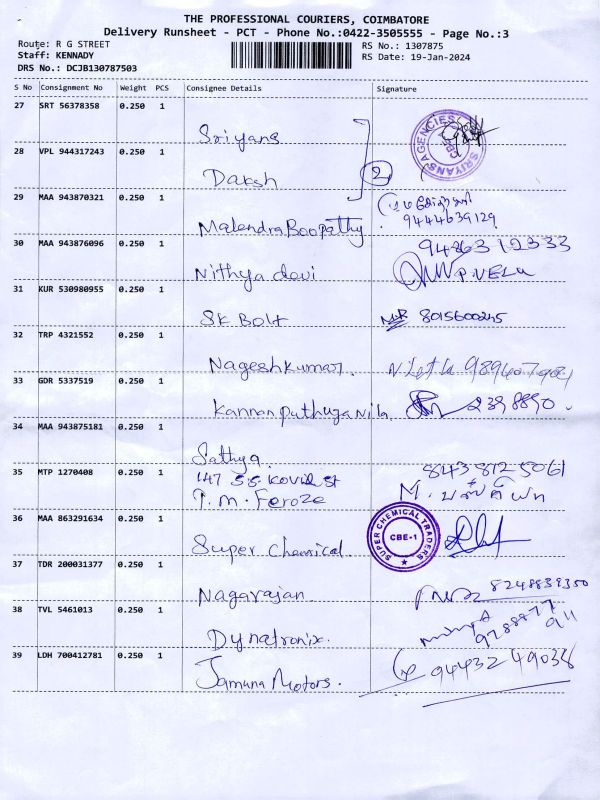 THE PROFESSIONAL COURIERS, COIMBATORE
Delivery Runsheet - PCT - Phone No.:0422-3505555 - Page No.:3
Route: R G STREET
Staff: KENNADY
DRS No.: DCJB130787503
RS No.: 1307875
RS Date: 19-Jan-2024
S No Consignment No Weight PCS Consignee Details Signature
27 SRT 56378358 0.250 1 Sriyans
SRIYANS AGENCIES CBE
28 VPL 944317243 0.250 1 Daksh
2
29 MAA 943870321 0.250 1 Malendra Boopathy
9444639129
30 MAA 943876096 0.250 1 Nithya devi
9486312333
P.VELU
31 KUR 530980955 0.250 1 SK Bolt
8015600245
32 TRP 4321552 0.250 1 Nageshkumar.
33 GDR 5337519 0.250 1 Kannan puthuganila
2398890.
34 MAA 943875181 0.250 1 Sathya.
35 MTP 1270408 0.250 1 147 S.S. Kovil st
T.M. Feroze
8438725061
36 MAA 863291634 0.250 1 Super Chemical
SUPER CHEMICAL TRADERS
CBE-1
37 TDR 200031377 0.250 1 Nagarajan
8248839350
38 TVL 5461013 0.250 1 Dynatronix.
39 LDH 700412781 0.250 1 Jamuna Motors.
94432 49038